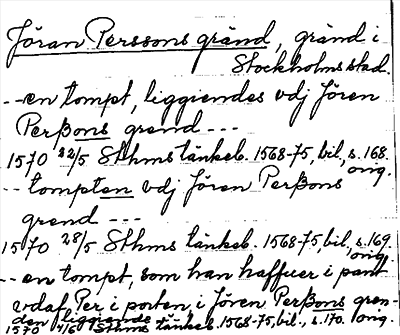 Jöran Perssons gränd, gränd i
Stockholms stad.
--en tompt, liggiendes vdj Jören
Perßons grend ---
1570 22/5 Sthms tänkeb. 1568-75, bil., s. 168.
orig.
-- tompten vdj Jören Perßons
grend ---
1570 28/5 Sthms tänkeb. 1568-75, bil., s. 169.
orig.
--en tompt, som han haffuer i pant
vdaf Per i porten, i Jören Perßons gren-
den liggiende
1570 4/6 Sthms tänkeb. 1568-75, bil., s. 170. orig.